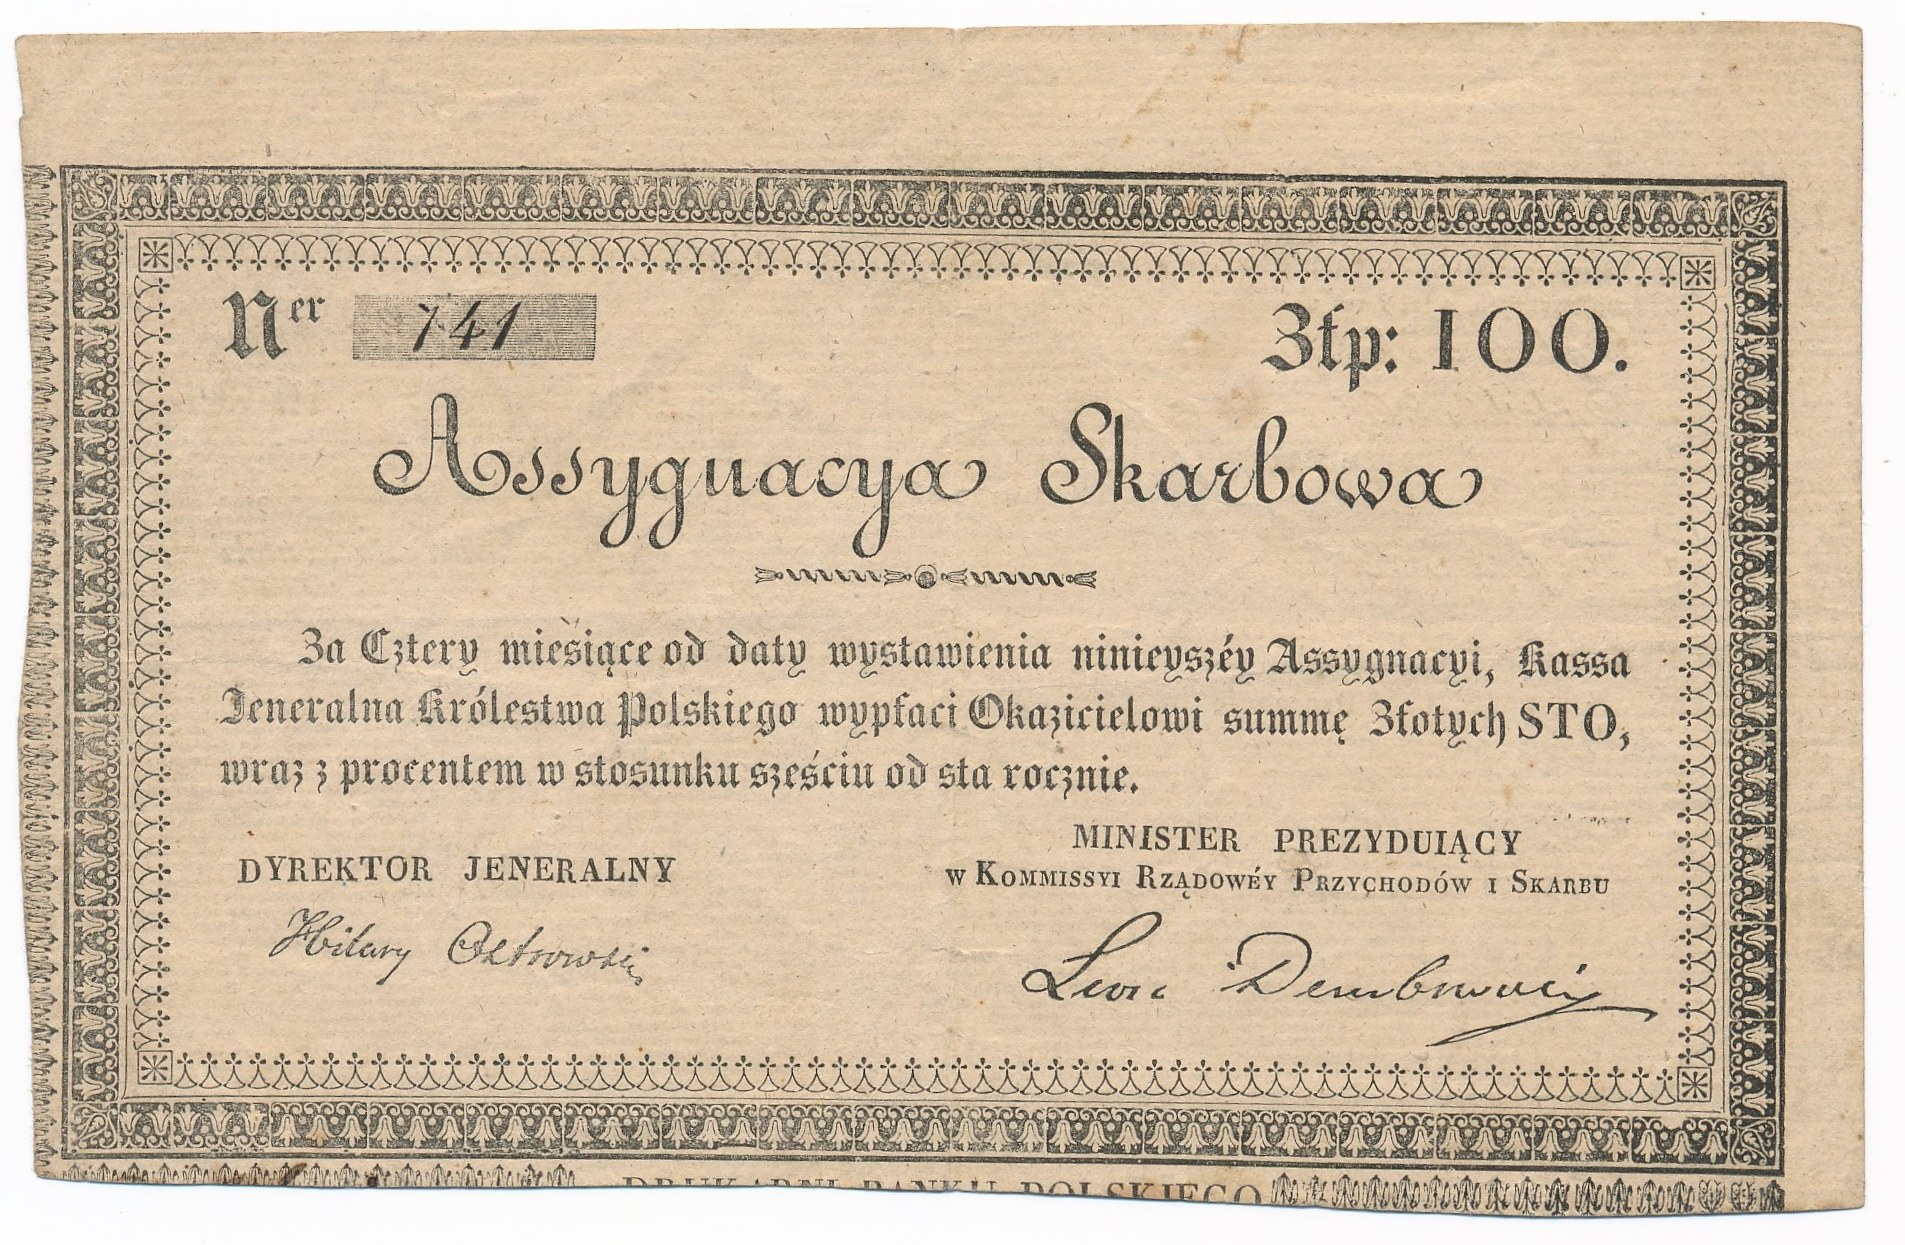 Ner 741 Złp: 100.
Assygnacya Skarbowa
Za Cztery miesiące od daty wystawienia ninieyszéy Assygnacyi, Kassa
Jeneralna Królestwa Polskiego wypłaci Okazicielowi summę Złotych STO,
wraz z procentem w stosunku sześciu od sta rocznie.
DYREKTOR JENERALNY
MINISTER PREZYDUIĄCY
w Kommissyi Rządowéy Przychodów i Skarbu
Hilary Ostrowski
Leon Dembowski
DRUKARNI BANKU POLSKIEGO